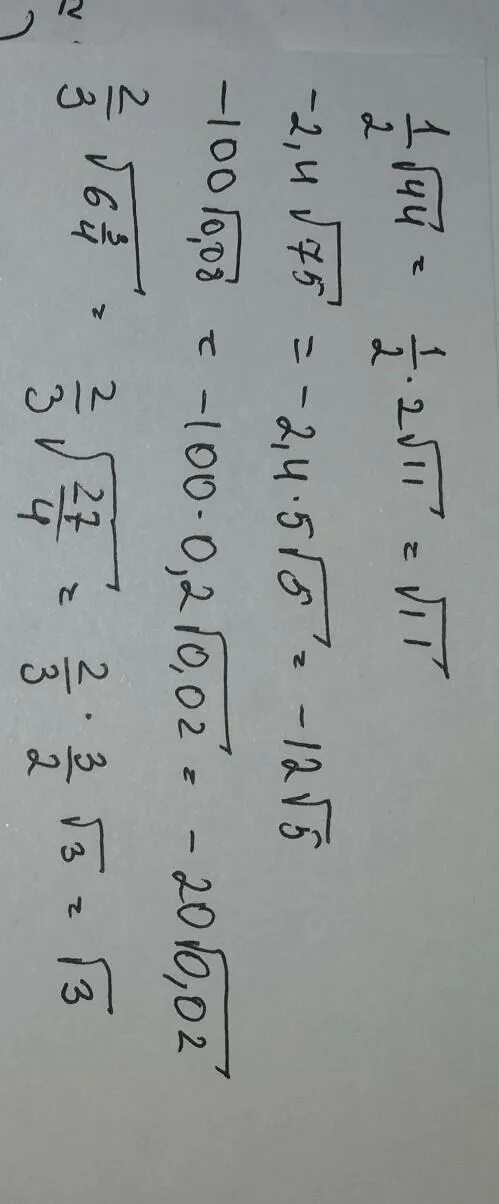 1/2 √44 = 1/2 · 2√11 = √11
-2,4 √75 = -2,4 · 5√5 = -12√5
-100 √0,08 = -100 · 0,2√0,02 = -20√0,02
2/3 √6 3/4 = 2/3 √27/4 = 2/3 · 3/2 √3 = √3